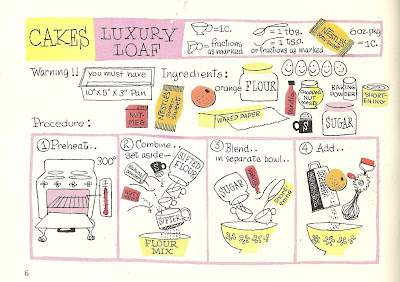 CAKES LUXURY LOAF
=1c.
=fractions as marked
=1 tbs.
=1 tsp. or fractions as marked
NESTLÉS SEMI-SWEET
6oz.pkg =1c.
Warning!! you must have 10"x5"x3" Pan
Ingredients:
NUT-MEG
NESTLÉS SEMI-SWEET
orange
FLOUR
WAXED PAPER
Vanilla
S
chopped NUT meats
BAKING POWDER
SUGAR
SHORT-ENING
Procedure:
1 Preheat..
300°
2 Combine.. set aside—
SIFTED FLOUR
SIFTER
FLOUR MIX
3 Blend.. in separate bowl..
SUGAR
4 Add..
6